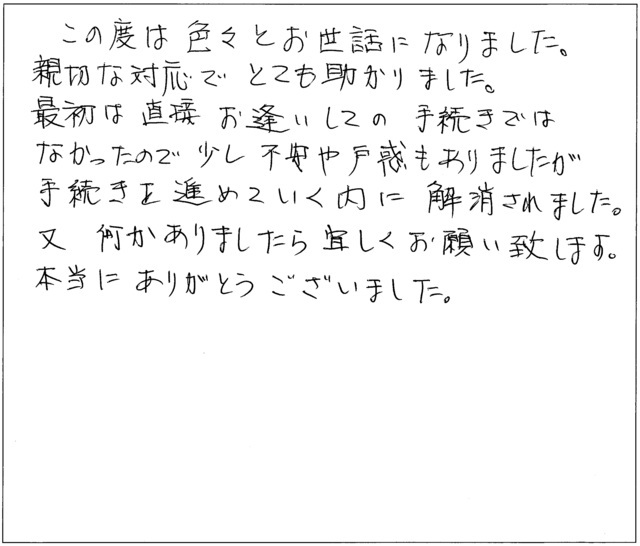 この度は色々とお世話になりました。
親切な対応でとても助かりました。
最初は直接お逢いしての手続きでは
なかったので少し不安や戸惑もありましたが
手続きを進めていく内に解消されました。
又何かありましたら宜しくお願い致します。
本当にありがとうございました。